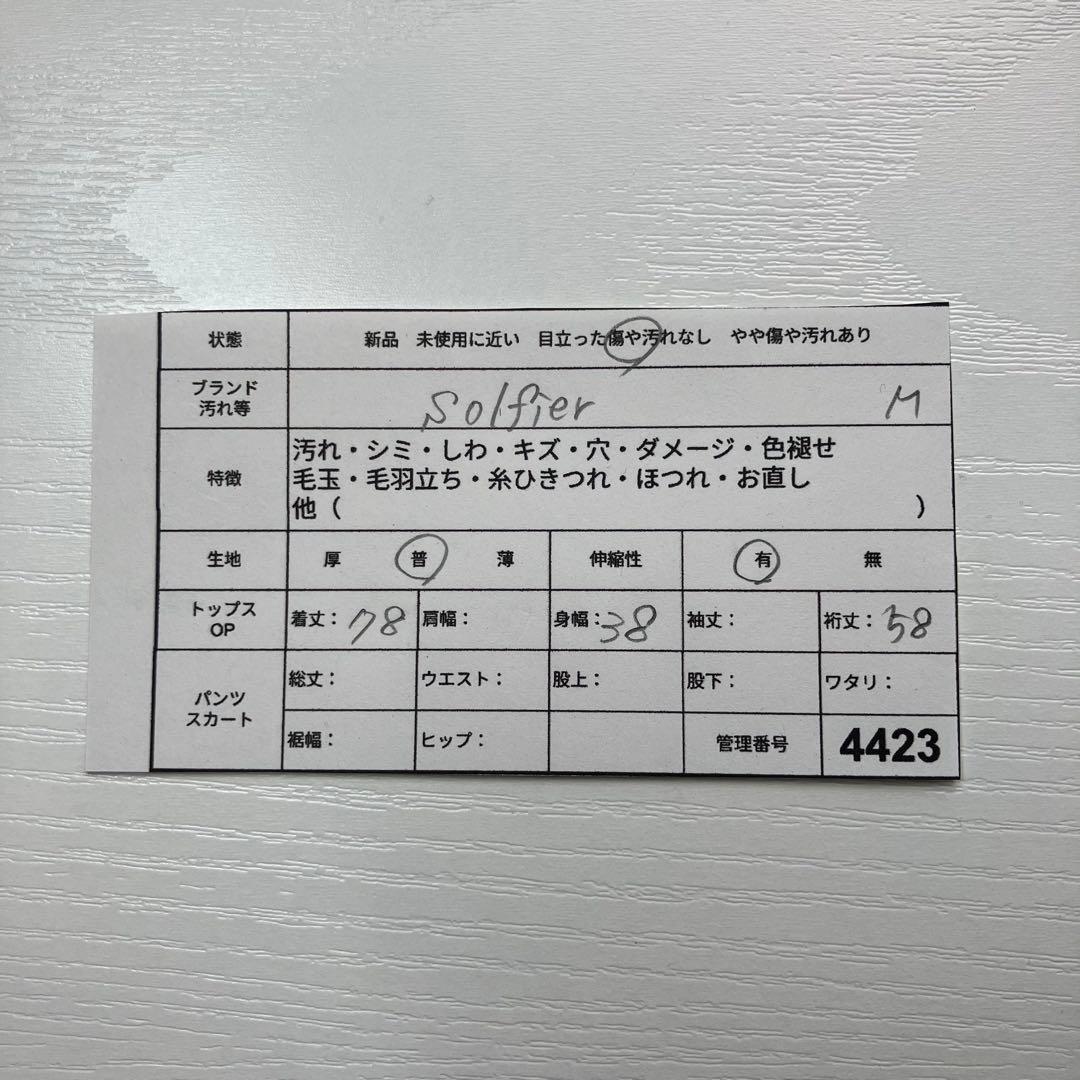 状態 新品 未使用に近い 目立った傷や汚れなし やや傷や汚れあり
ブランド
汚れ等 Solfier M
特徴 汚れ・シミ・しわ・キズ・穴・ダメージ・色褪せ
毛玉・毛羽立ち・糸ひきつれ・ほつれ・お直し
他（ ）
生地 厚 普 薄 伸縮性 有 無
トップス
OP 着丈：78 肩幅： 身幅：38 袖丈： 裄丈：58
パンツ
スカート 総丈： ウエスト： 股上： 股下： ワタリ：
裾幅： ヒップ： 管理番号 4423